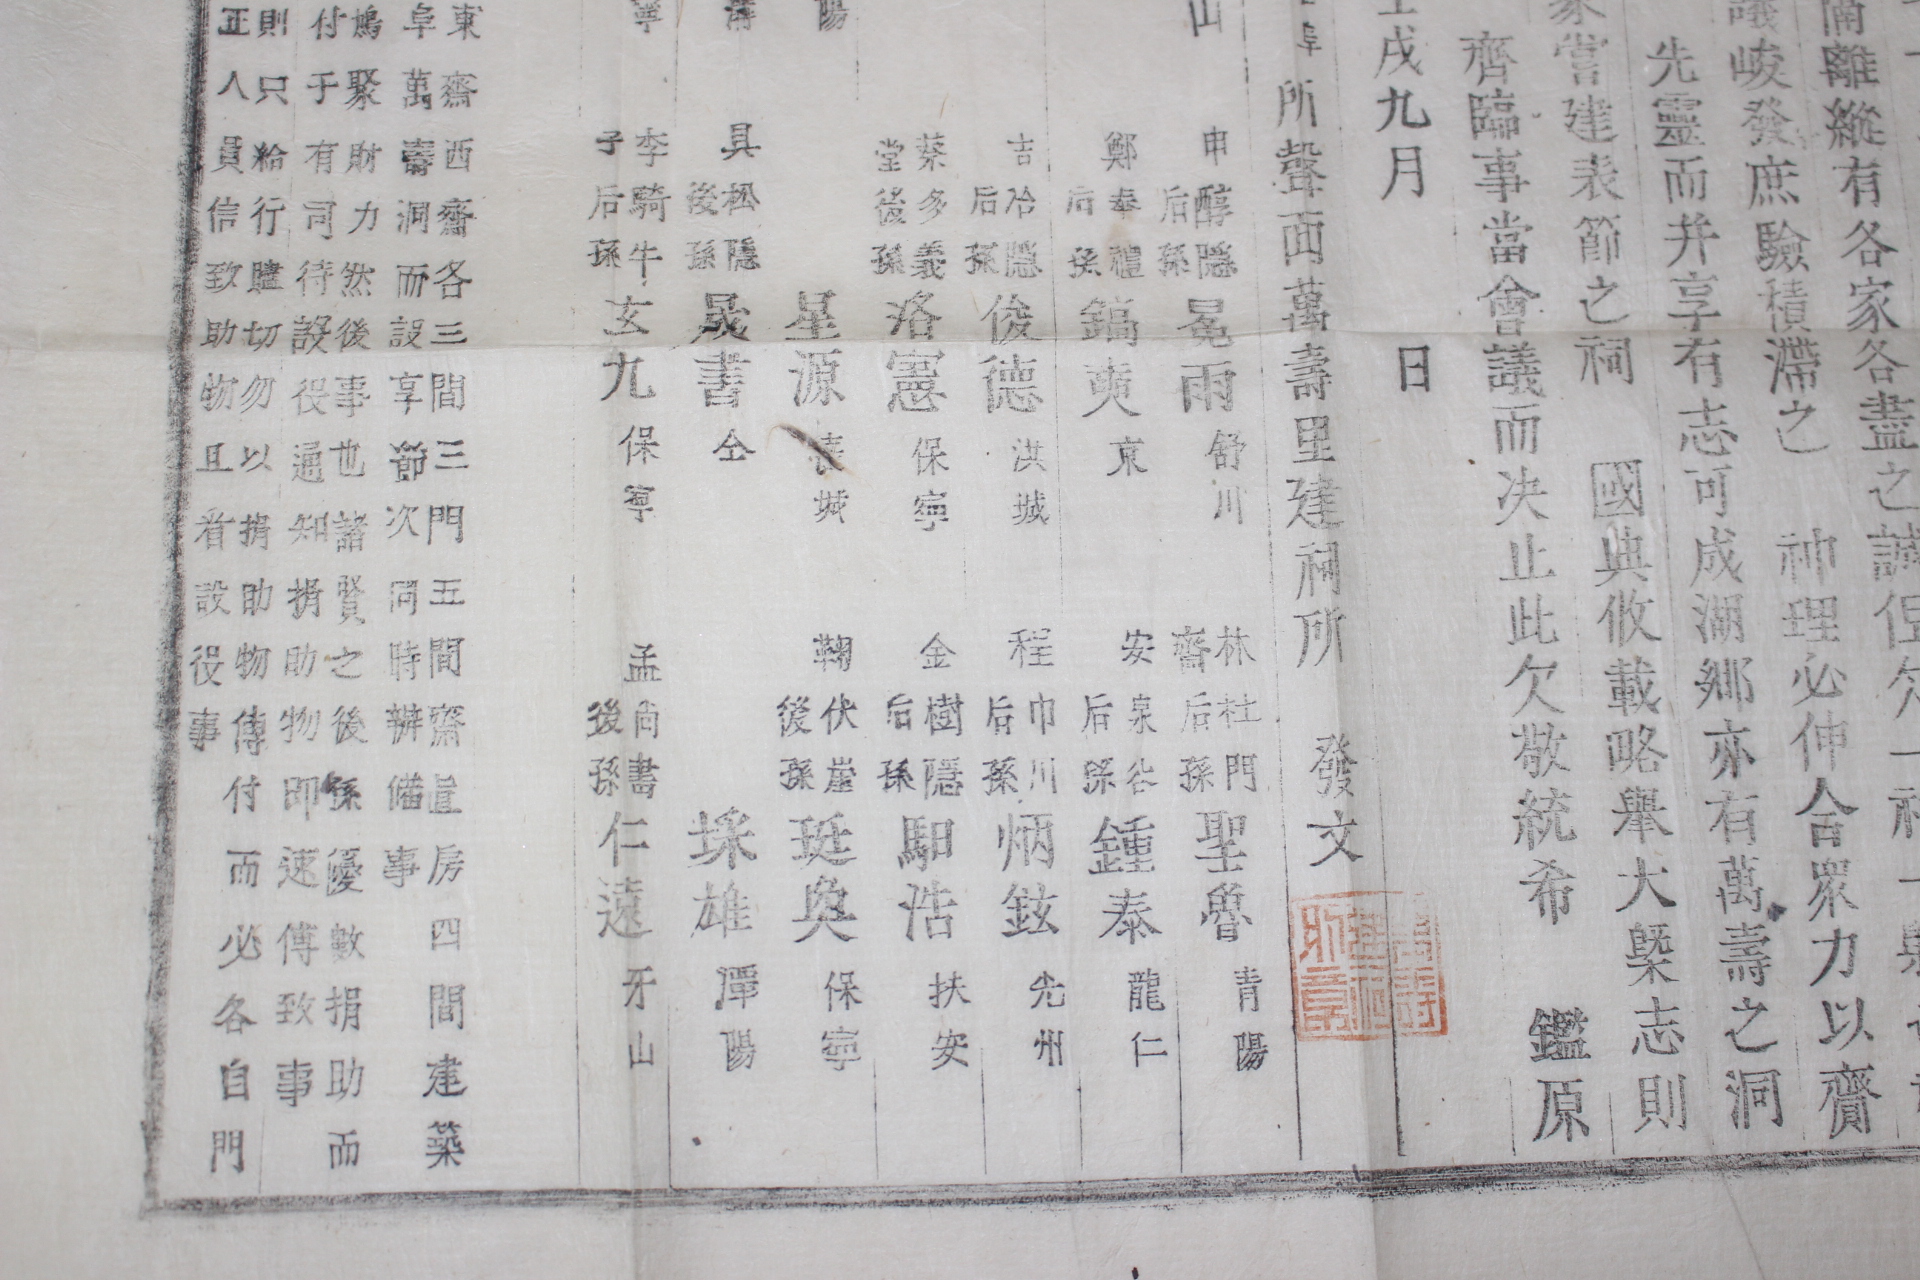 隔離縱有各家各盡之誠但欠一
議峻發庶驗積滯之 神理必伸合眾力以齎
先靈而并享有志可成湖鄉亦有萬壽之洞
家當建表節之祠 國典攸載略舉大槩志則
齊臨事當會議而決止此欠敬統希 鑑原
戌九月 日
阜所聲面萬壽里建祠所 發文
山 申醇隱后孫 冕雨 舒川 林杜門齋后孫 聖魯 青陽
鄭奉禮后孫 鎬奭 京 安泉谷后孫 鍾泰 龍仁
吉冶隱后孫 俊德 洪城 程巾川后孫 炳鉉 光州
蔡多義堂後孫 洛憲 保寧 金樹隱后孫 馹浩 扶安
陽 星源 城 鞠伏崖後孫 珽奐 保寧
具松隱後孫 晟書 仝 埰雄 潭陽
寧 李騎牛子后孫 玄九 保寧 孟尚書後孫 仁遠 牙山
東齋西齋各三間三門五間齋直房四間建築
阜萬壽洞而設享節次同時辦備事
鳩聚財力然後事也諸賢之後孫優數捐助而
付于有司待設役通知捐助物即速傳致事
則只給行贐切勿以捐助物傳付而必各自門
正人員信致助物且着設役事